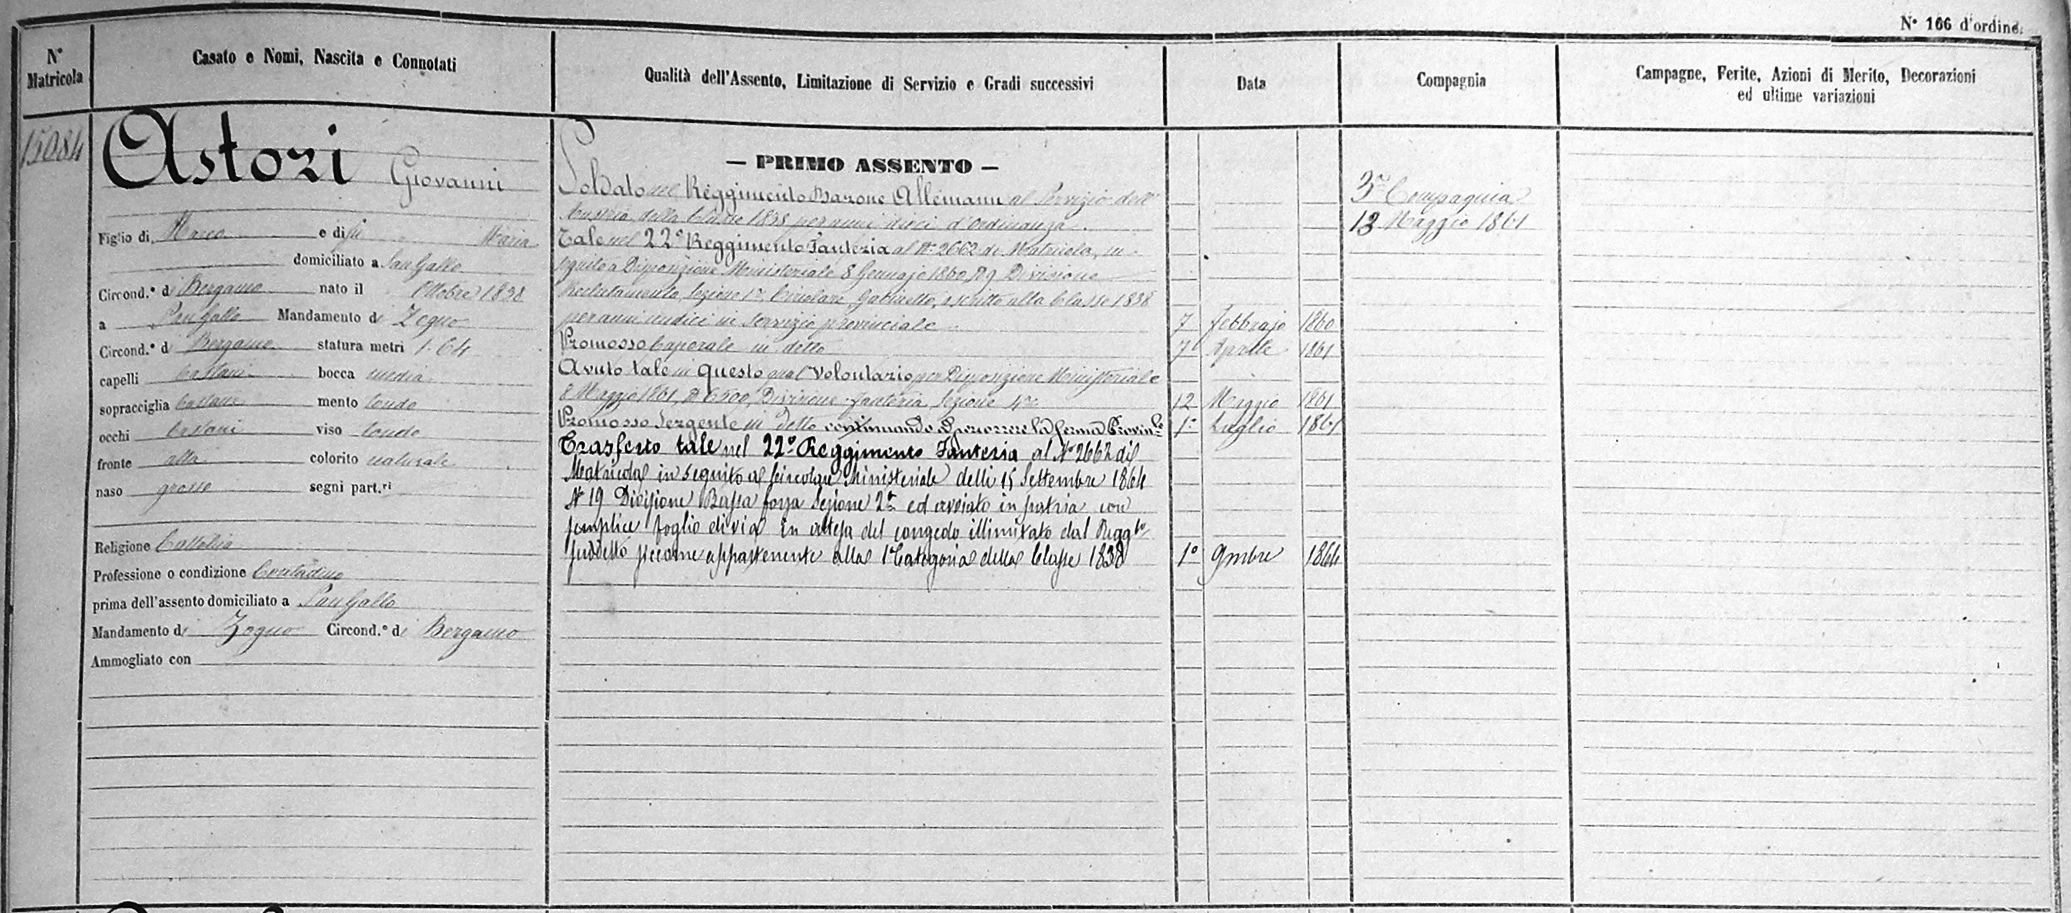 N° 166 d'ordine.
N° Matricola
Casato e Nomi, Nascita e Connotati
Qualità dell'Assento, Limitazione di Servizio e Gradi successivi
Data
Compagnia
Campagne, Ferite, Azioni di Merito, Decorazioni
ed ultime variazioni
15084
Astori Giovanni
Figlio di Marco e di fu Maria
domiciliato a San Gallo
Circond.° di Bergamo nato il Ottobre 1838
a San Gallo Mandamento di Zogno
Circond.° di Bergamo statura metri 1.64
capelli castani bocca media
sopracciglia castane mento tondo
occhi castani viso tondo
fronte alta colorito naturale
naso grosso segni part.ri
Religione Cattolica
Professione o condizione Contadino
prima dell'assento domiciliato a San Gallo
Mandamento di Zogno Circond.° di Bergamo
Ammogliato con
— PRIMO ASSENTO —
Soldato nel Reggimento Barone Allemann al Servizio dell'
Austria dalla Classe 1838 per anni dieci d'ordinanza
Tale nel 22° Reggimento Fanteria al N° 2662 di Matricola, in
seguito a Disposizione Ministeriale 8 Gennajo 1860, N 9 Divisione
Reclutamento, Sezione 1a, Circolare Gabinetto, ascritto alla Classe 1838
per anni undici in servizio provinciale 7 Febbrajo 1860
Promosso Caporale in detto 7 Aprile 1861
Avuto tale in Questo qual Volontario per Disposizione Ministeriale
8 Maggio 1861, N 6500, Divisione fanteria, Sezione 12 Maggio 1861
Promosso Sergente in detto continuando a percorrere la ferma Provin.le 1° Luglio 1861
Trasferto tale nel 22° Reggimento Fanteria al N° 2662 di
Matricola in seguito a Circolare Ministeriale delli 15 Settembre 1864
N° 19 Divisione Bassa forza Sezione 2a ed avviato in patria con
semplice foglio di via In attesa del congedo illimitato dal Regg.to
suddetto siccome appartenente alla 1a Categoria della Classe 1838 1° 9mbre 1864
3a Compagnia
13 Maggio 1861